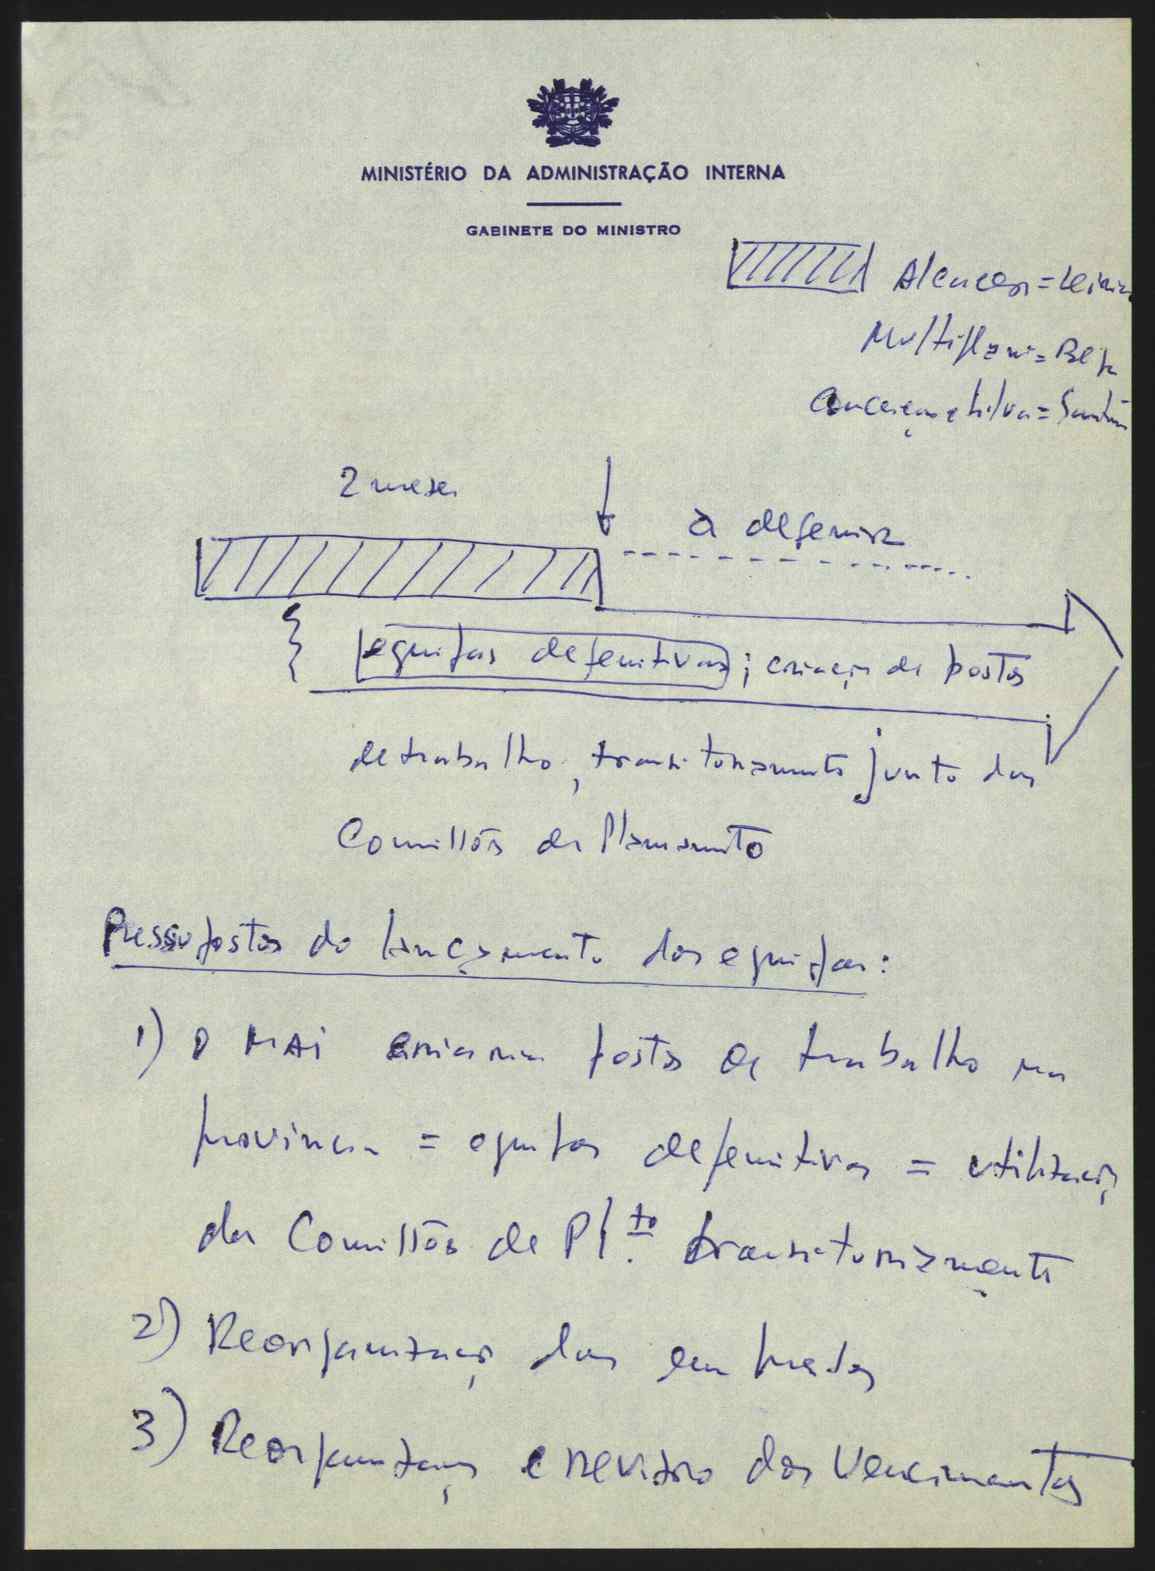 MINISTÉRIO DA ADMINISTRAÇÃO INTERNA
GABINETE DO MINISTRO
= Leiria
= Beja
e Silva =
2 meses
a defenir
equipas defenitivas; criação de postos
de trabalho, transitoriamente junto das
Comissões de Planeamento
Pressupostos do lançamento das equipas:
1) O MAI criaria postos de trabalho na
provincia = equipas defenitivas = utilização
das Comissões de Pl.to transitoriamente
2) Reorganização das
3) Reorganização e revisão dos Vencimentos